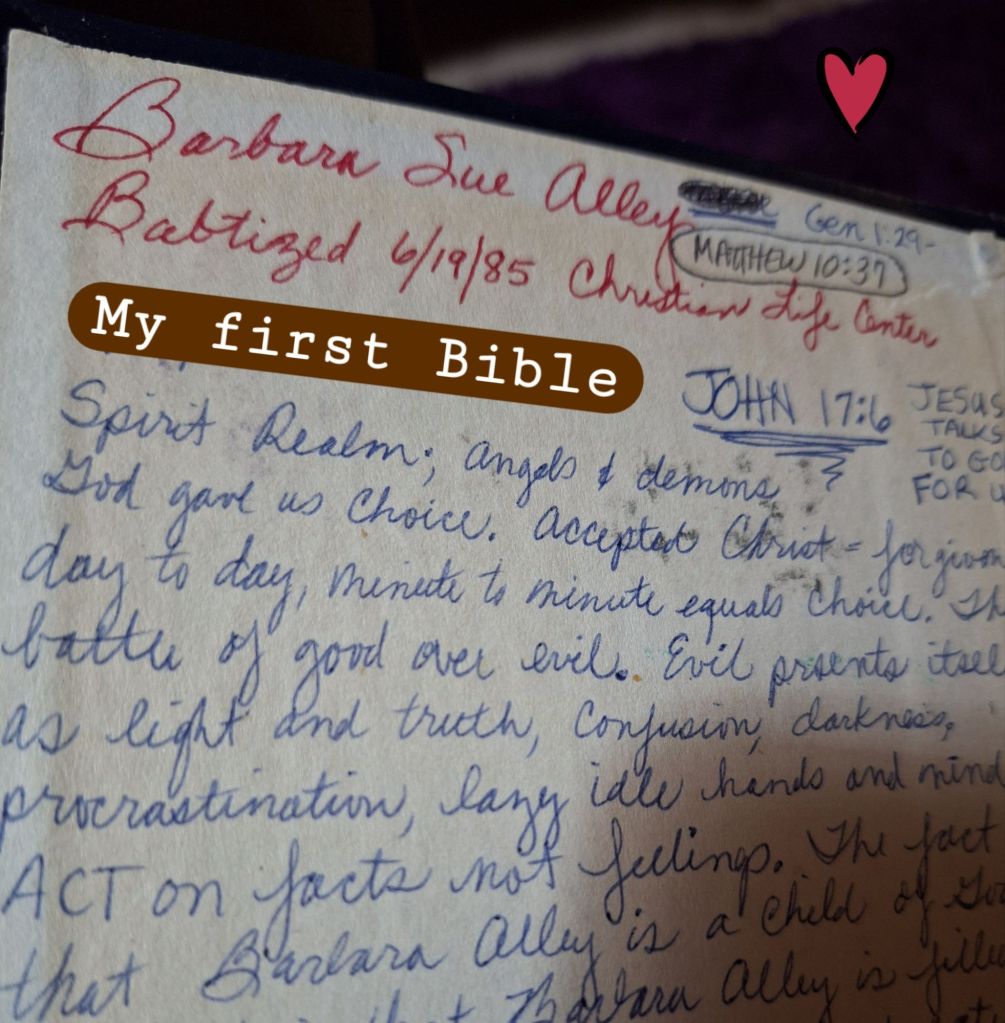 Barbara Sue Alley
Gen 1:29-
Babtized 6/19/85 Christian Life Center
MATTHEW 10:37
My first Bible
JOHN 17:6
JESUS
TALKS
TO GO
FOR U
Spirit Realm; angels & demons
God gave us choice. accepted Christ = forgiven
day to day, minute to minute equals choice. Th
battle of good over evil. Evil prsents itsel
as light and truth, confusion, darkness,
procrastination, lazy idle hands and mind
ACT on facts not feelings. The fact
that Barbara Alley is a child of Go
that Barbara Alley is fille